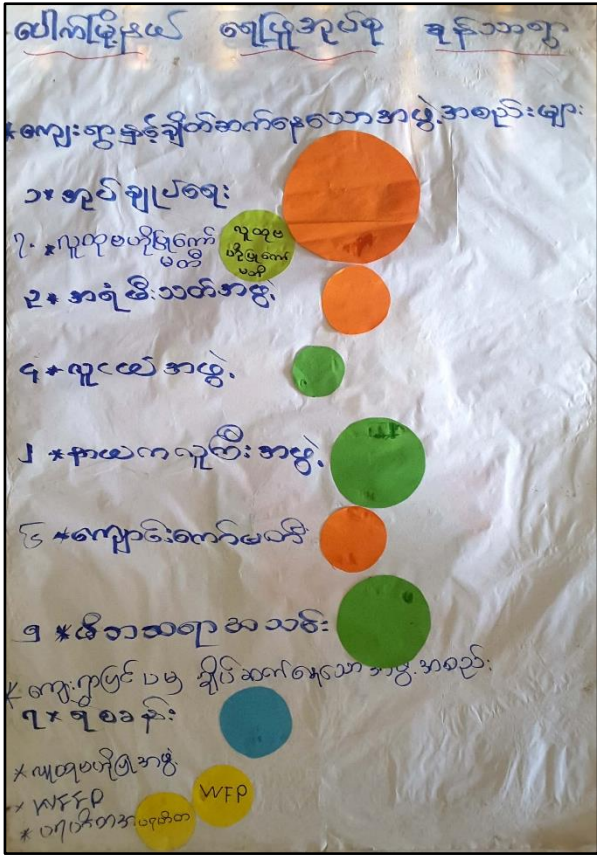 ပေါက်မြို့နယ် ရေဖြူအုပ်စု ခုန်သာရွာ
* ကျေးရွာနှင့်ချိတ်ဆက်နေသော အဖွဲ့အစည်းများ
၁* အုပ်ချုပ်ရေး
၇. * လူထုဗဟိုပြုကော်
မတီ
လူထုဗ
ဟိုပြုကော်
မတီ
၃* အရံမီးသတ်အဖွဲ့
၄* လူငယ်အဖွဲ့
၂ * နာယကလူကြီးအဖွဲ့
၆ * ကျောင်းကော်မတီ
၅ * မိဘဆရာအသင်း
* ကျေးရွာပြင်ပမှ ချိပ်ဆက်နေသော အဖွဲ့အစည်း
၇* ရဲစခန်း
* လူထုဗဟိုပြုအဖွဲ့
* WFFP
WFP
* ပရဟိတ